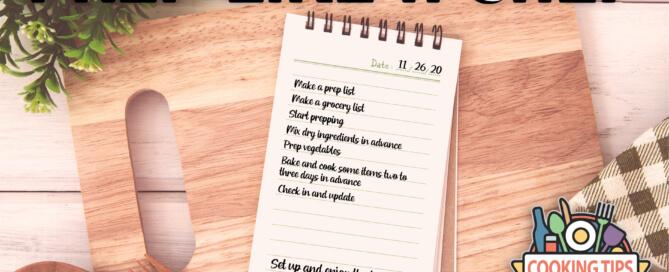 Date: 11/26/20
Make a prep list
Make a grocery list
Start prepping
Mix dry ingredients in advance
Prep vegetables
Bake and cook some items two to
three days in advance
Check in and update
Set up and enjoy
COOKING TIPS